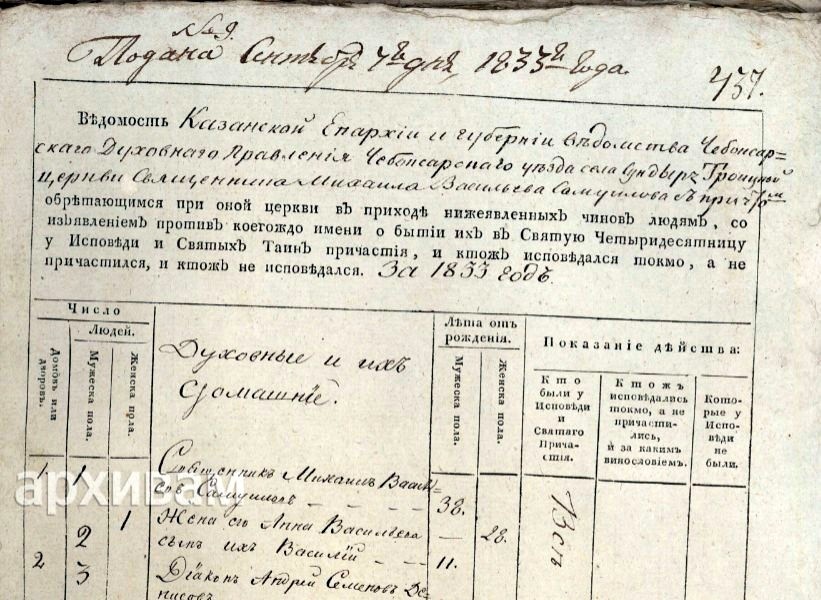 № 9.
Подана Сентября 7го дня, 1833го Года.
437.
Вѣдомость Казанской Епархіи и губерніи вѣдомства Чебоксар=
скаго Духовнаго Правленія Чебоксарскаго уѣзда села Сундыръ Троицкой
церкви Священника Михаила Васильева Самуилова съ причтомъ
обрѣтающимся при оной церкви въ приходѣ нижеявленныхъ чиновъ людямъ, со
изъявленіемъ противъ коегождо имени о бытіи ихъ въ Святую Четыридесятницу
у Исповѣди и Святыхъ Таинъ причастія, и ктожъ исповѣдался токмо, а не
причастился, и ктожъ не исповѣдался. За 1833 годъ.
Число
Людей.
Домовъ или
дворовъ.
Мужеска пола.
Женска пола.
Духовные и ихъ
Домашніе.
Лѣта отъ
рожденія.
Мужеска пола.
Женска пола.
Показаніе дѣйства:
Кто
были у
Исповѣди
и
Святаго
Прича-
стія.
Ктожъ
исповѣдались
токмо, а не
причасти-
лись,
и за какимъ
винословіемъ.
Кото-
рые у
Испо-
вѣди
не
были.
1 1 Священникъ Михаилъ Василь=
евъ Самуиловъ 38.
1 Жена его Анна Васильева 28.
2 сынъ ихъ Василій 11.
2 3 Діаконъ Андрей Семеновъ Де=
нисовъ
Всѣ
архивам